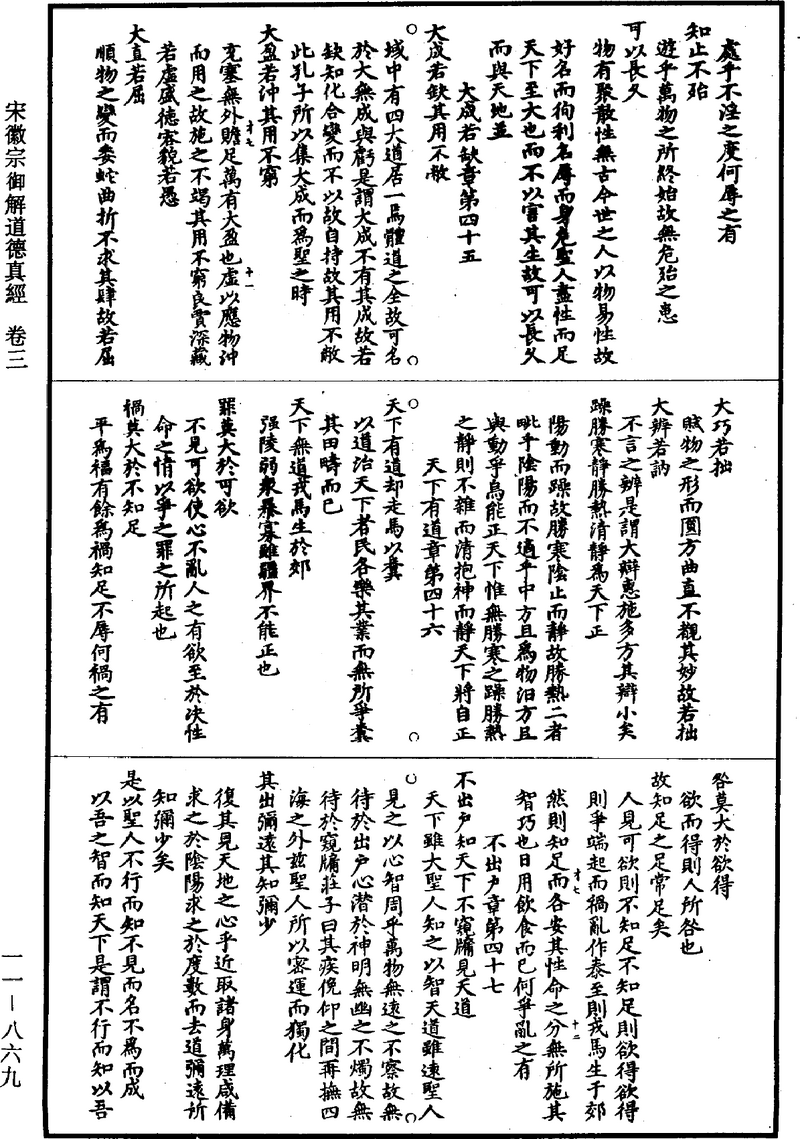 宋徽宗御解道德真經　卷三
處乎不淫之度何辱之有
知止不殆
遊乎萬物之所終始故無危殆之患
可以長久
物有聚散性無古今世之人以物易性故
好名而徇利名辱而身危聖人盡性而足
天下至大也而不以害其生故可以長久
而與天地並
大成若缺章第四十五
大成若缺其用不敝
域中有四大道居一焉體道之全故可名
於大無成與虧是謂大成不有其成故若
缺知化合變而不以故自持故其用不敝
此孔子所以集大成而爲聖之時
大盈若沖其用不窮
充塞無外贍足萬有大盈也虛以應物沖
而用之故施之不竭其用不窮良賈深藏
若虛盛德容貌若愚
大直若屈
順物之變而委蛇曲折不求其肆故若屈
大巧若拙
賦物之形而圓方曲直不覩其妙故若拙
大辨若訥
不言之辨是謂大辯惠施多方其辯小矣
躁勝寒靜勝熱清靜爲天下正
陽動而躁故勝寒陰止而靜故勝熱二者
毗乎陰陽而不適乎中方且爲物汩方且
與動爭烏能正天下惟無勝寒之躁勝熱
之靜則不雜而清抱神而靜天下將自正
天下有道章第四十六
天下有道却走馬以糞
以道治天下者民各樂其業而無所爭糞
其田疇而已
天下無道戎馬生於郊
强陵弱衆暴寡雖疆界不能正也
罪莫大於可欲
不見可欲使心不亂人之有欲至於決性
命之情以爭之罪之所起也
禍莫大於不知足
平爲福有餘爲禍知足不辱何禍之有
咎莫大於欲得
欲而得則人所咎也
故知足之足常足矣
人見可欲則不知足不知足則欲得欲得
則爭端起而禍亂作泰至則戎馬生于郊
然則知足而各安其性命之分無所施其
智巧也日用飲食而已何爭亂之有
不出户章第四十七
不出户知天下不窺牖見天道
天下雖大聖人知之以智天道雖遠聖人
見之以心智周乎萬物無遠之不察故無
待於出户心潛於神明無幽之不燭故無
待於窺牖莊子曰其疾俛仰之間再撫四
海之外兹聖人所以密運而獨化
其出彌遠其知彌少
復其見天地之心乎近取諸身萬理咸備
求之於陰陽求之於度數而去道彌遠所
知彌少矣
是以聖人不行而知不見而名不爲而成
以吾之智而知天下是謂不行而知以吾
一一—八六九